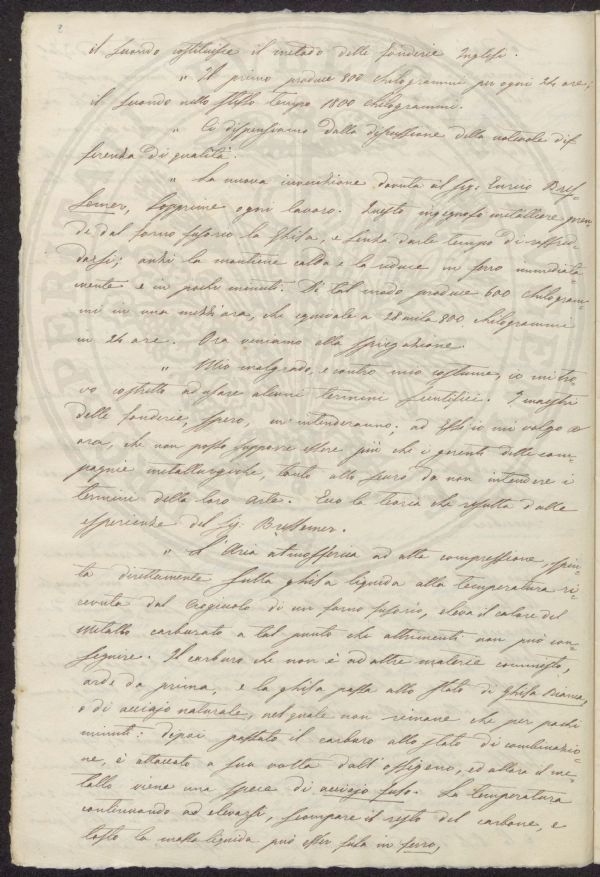 il secondo costituisce il metodo delle fonderie Inglesi.
" Il primo produce 800 chilogrammi per ogni 24 ore;
il secondo nello stesso tempo 1800 chilogrammi.
" Ci dispensiamo dalla discussione della naturale dif
ferenza di qualità.
" La nuova invenzione dovuta al Sig: Enrico Bes-
semer, sopprime ogni lavoro. Questo ingegnoso metalliere pren
de dal forno fusorio la ghisa, e senza darle tempo di raffred-
darsi; anzi la mantiene calda e la riduce in ferro immediata-
mente e in pochi minuti. Di tal modo produce 600 chilogram-
mi in una mezz'ora, che equivale a 28 mila 800 chilogrammi
in 24 ore. Ora veniamo alla spiegazione.
" Mio malgrado, e contro mio costume, io mi tro
vo costretto ad usare alcuni termini scientifici. I maestri
delle fonderie, spero, m'intenderanno; ad essi io mi volgo
ora, che non posso supporre essere più che i gerenti delle com-
pagnie metallurgiche, tanto allo scuro da non intendere i
termini della loro arte. Ecco la teoria che risulta dalle
esperienze del Sig: Bessemer.
" L'Aria atmosferica ad alta compressione, spin-
ta direttamente sulla ghisa liquida alla temperatura ri-
cevuta dal crogiuolo di un forno fusorio, eleva il calore del
metallo carburato a tal punto che altrimenti non può con-
seguire. Il carburo che non è ad altre materie commisto,
arde da prima, e la ghisa passa allo stato di Ghisa Bianca,
o di acciajo naturale, nel quale non rimane che per pochi
minuti: dopoi passato il carburo allo stato di combinazio-
ne, è attaccato a sua volta dall'ossigeno, ed allora il me-
tallo viene una specie di acciajo fuso. La temperatura
continuando ad elevarsi, scompare il resto del carbone, e
tosto la massa liquida può esser fusa in ferro,